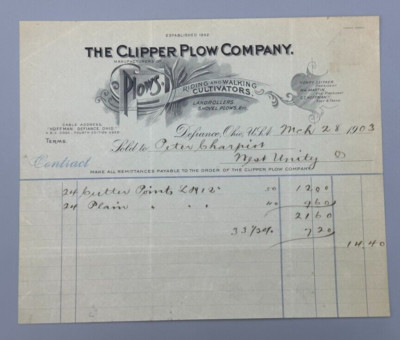 ESTABLISHED
THE CLIPPER PLOW COMPANY.
MANUFACTURERS OF
PLOWS
RIDING AND WALKING
CULTIVATORS
LANDROLLERS
SHOVEL PLOWS, Etc.
CABLE ADDRESS,
"HOFFMAN, DEFIANCE, OHIO."
Defiance, Ohio, U.S.A. Mch 28 1903
TERMS
Sold to Peter Sharpiot
West Unity O
Contract
MAKE ALL REMITTANCES PAYABLE TO THE ORDER OF THE CLIPPER PLOW COMPANY
24 Cutter Points 50 12 00
24 Plain " " " 40 9 60
21 60
33 1/3% 7 20
14.40